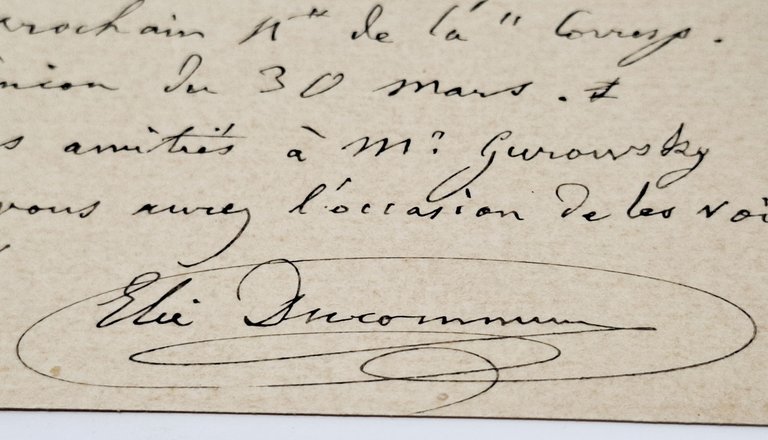 prochain Nº de la "Corresp.
union du 30 mars.
s amitiés à Mr Gurowsky
vous aurez l'occasion de les voi
Elie Ducommun